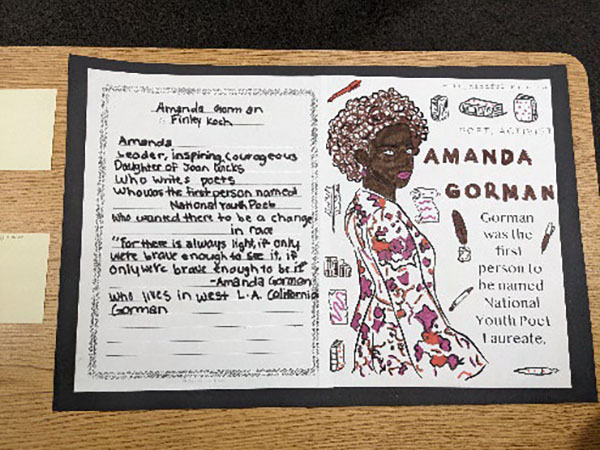 Amanda Gorman
Finley Koch
Amanda
Leader, inspiring, courageous
Daughter of Joan Wicks
Who writes poets
Who was the first person named
National Youth Poet
Who wanted there to be a change
in race
"For there is always light, if only
we're brave enough to see it, if
only we're brave enough to be it"
-Amanda Gorman
Who lives in West L.A. California
Gorman
POET, ACTIVIST
AMANDA
GORMAN
Gorman
was the
first
person to
be named
National
Youth Poet
Laureate.